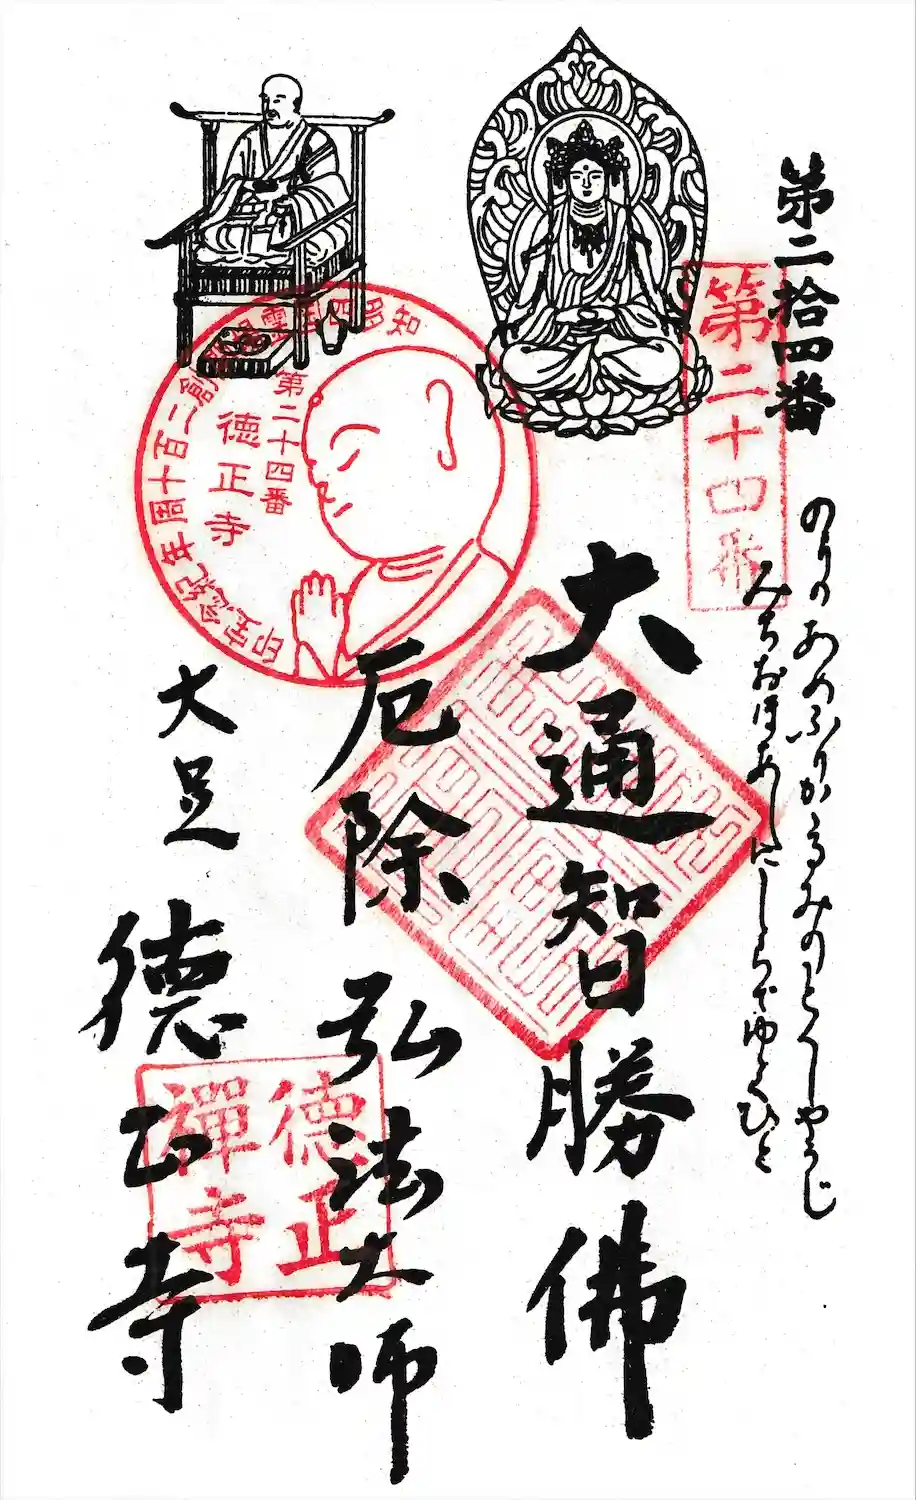 第二拾四番
第二十四番
のりのあめふりかゝるみのとくしやうじ
みちおほあしにしらでゆくひと
大通智勝佛
厄除 弘法大師
大足 徳正寺
第二十四番
徳正寺
徳正
禪寺